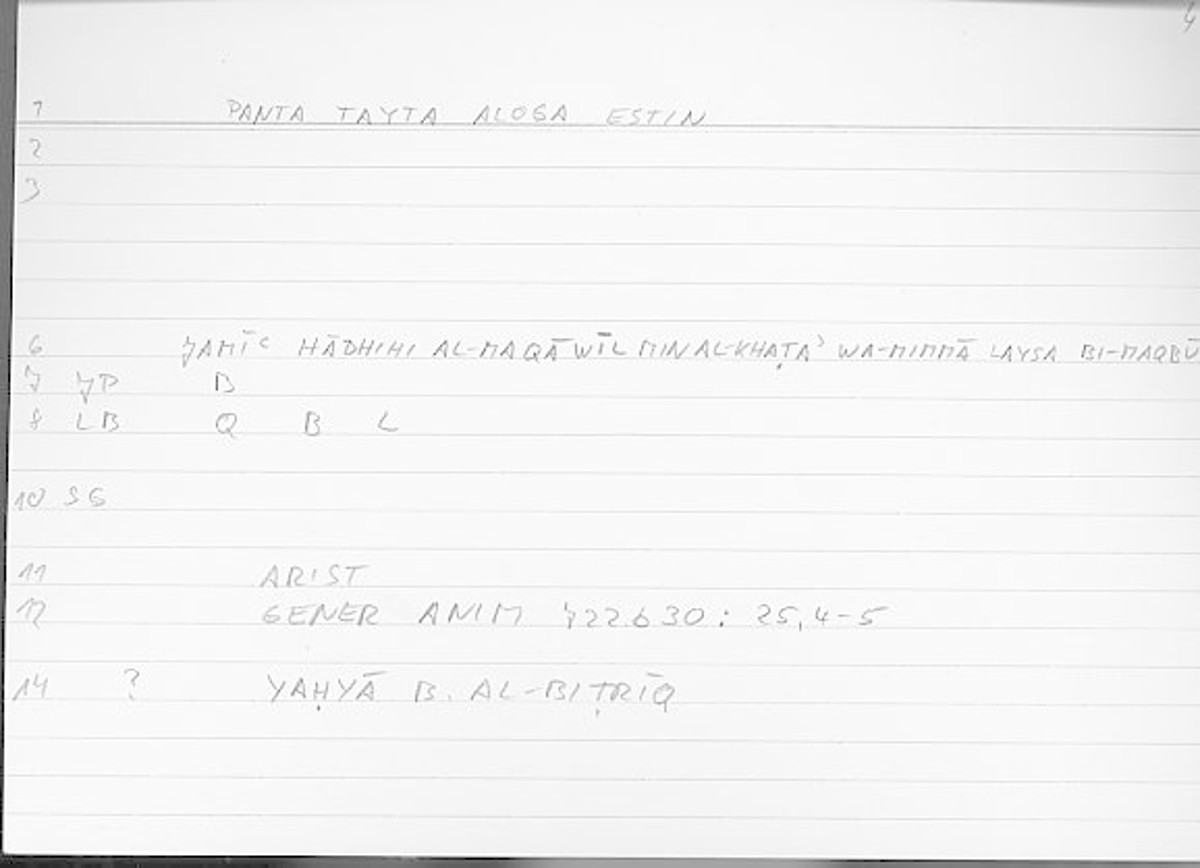 4
1 PANTA TAYTA ALOGA ESTIN
2
3
6 JAMĪC HĀDHIHI AL-MAQĀWĪL MIN AL-KHAṬAʾ WA-MIMMĀ LAYSA BI-MAQBŪ
7 JP B
8 LB Q B L
10 SG
11 ARIST
12 GENER ANIM 722b30: 25,4-5
14 ? YAḤYĀ B. AL-BIṬRĪQ